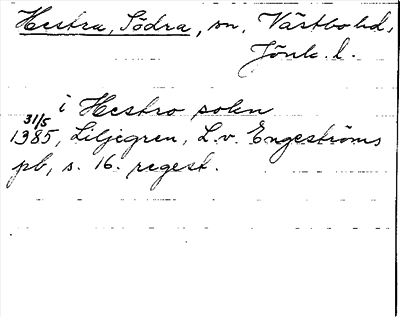 Hestra, Södra, sn, Västbo hd,
Jönk. l.
i Hestro sokn
31/5
1385, Liljegren, L. v. Engeströms
pb, s. 16. regest.